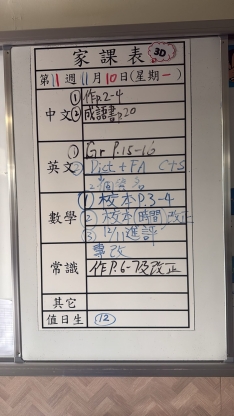 家課表 3D
第11週 11月10日(星期一)
中文 ① 作P.2-4
② 成語書P.20
英文 ① Gr P.15-16
② Dict + FA C+S
數學 ① 校本P.3-4
② 校本(時間)改正
③ 12/11進評
常識 專改
作P.6-7及改正
其它
值日生 ⑫